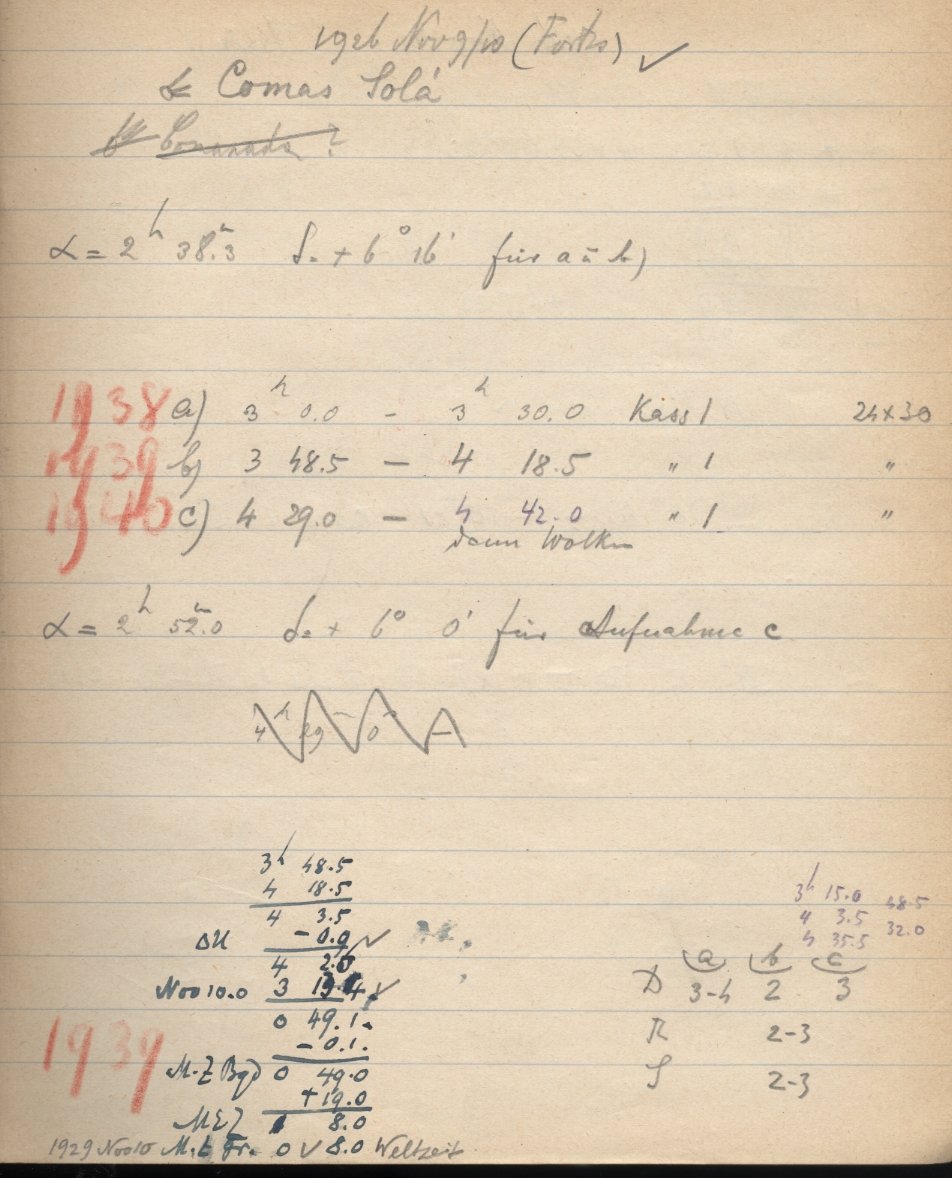 1926 Nov 9/10 (Forts) ✓
& Comas Solá
α = 2h 38m.3 δ = + 6° 16' für a u b)
1938 a) 3h 0.0 – 3h 30.0 Kass 1 24x30
1939 b) 3 48.5 – 4 18.5 " 1 "
1940 c) 4 29.0 – 4 42.0 " 1 "
dann Wolken
α = 2h 52m.0 δ = + 6° 0' für Aufnahme c
4h 29m 0
3h 48.5
4 18.5
4 3.5
ΔU – 0.9 ✓
4 2.6
Nov 10.0 3 13.4
0 49.1
– 0.1
M.Z Bgd 0 49.0
+ 19.0
MEZ 1 8.0
1929 Nov 10 M.Z Gr. 0 8.0 Weltzeit
1939
3h 15.0 48.5
4 3.5 32.0
4 35.5
a b c
D 3-4 2 3
R 2-3
S 2-3